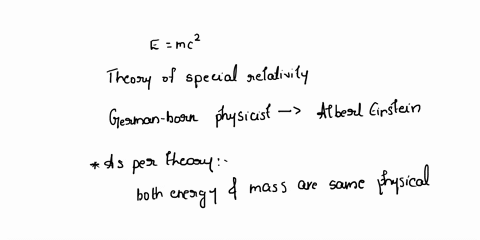 E = mc²
Theory of special relativity
German-born physicist -> Albert Einstein
* As per theory:-
both energy & mass are same physical